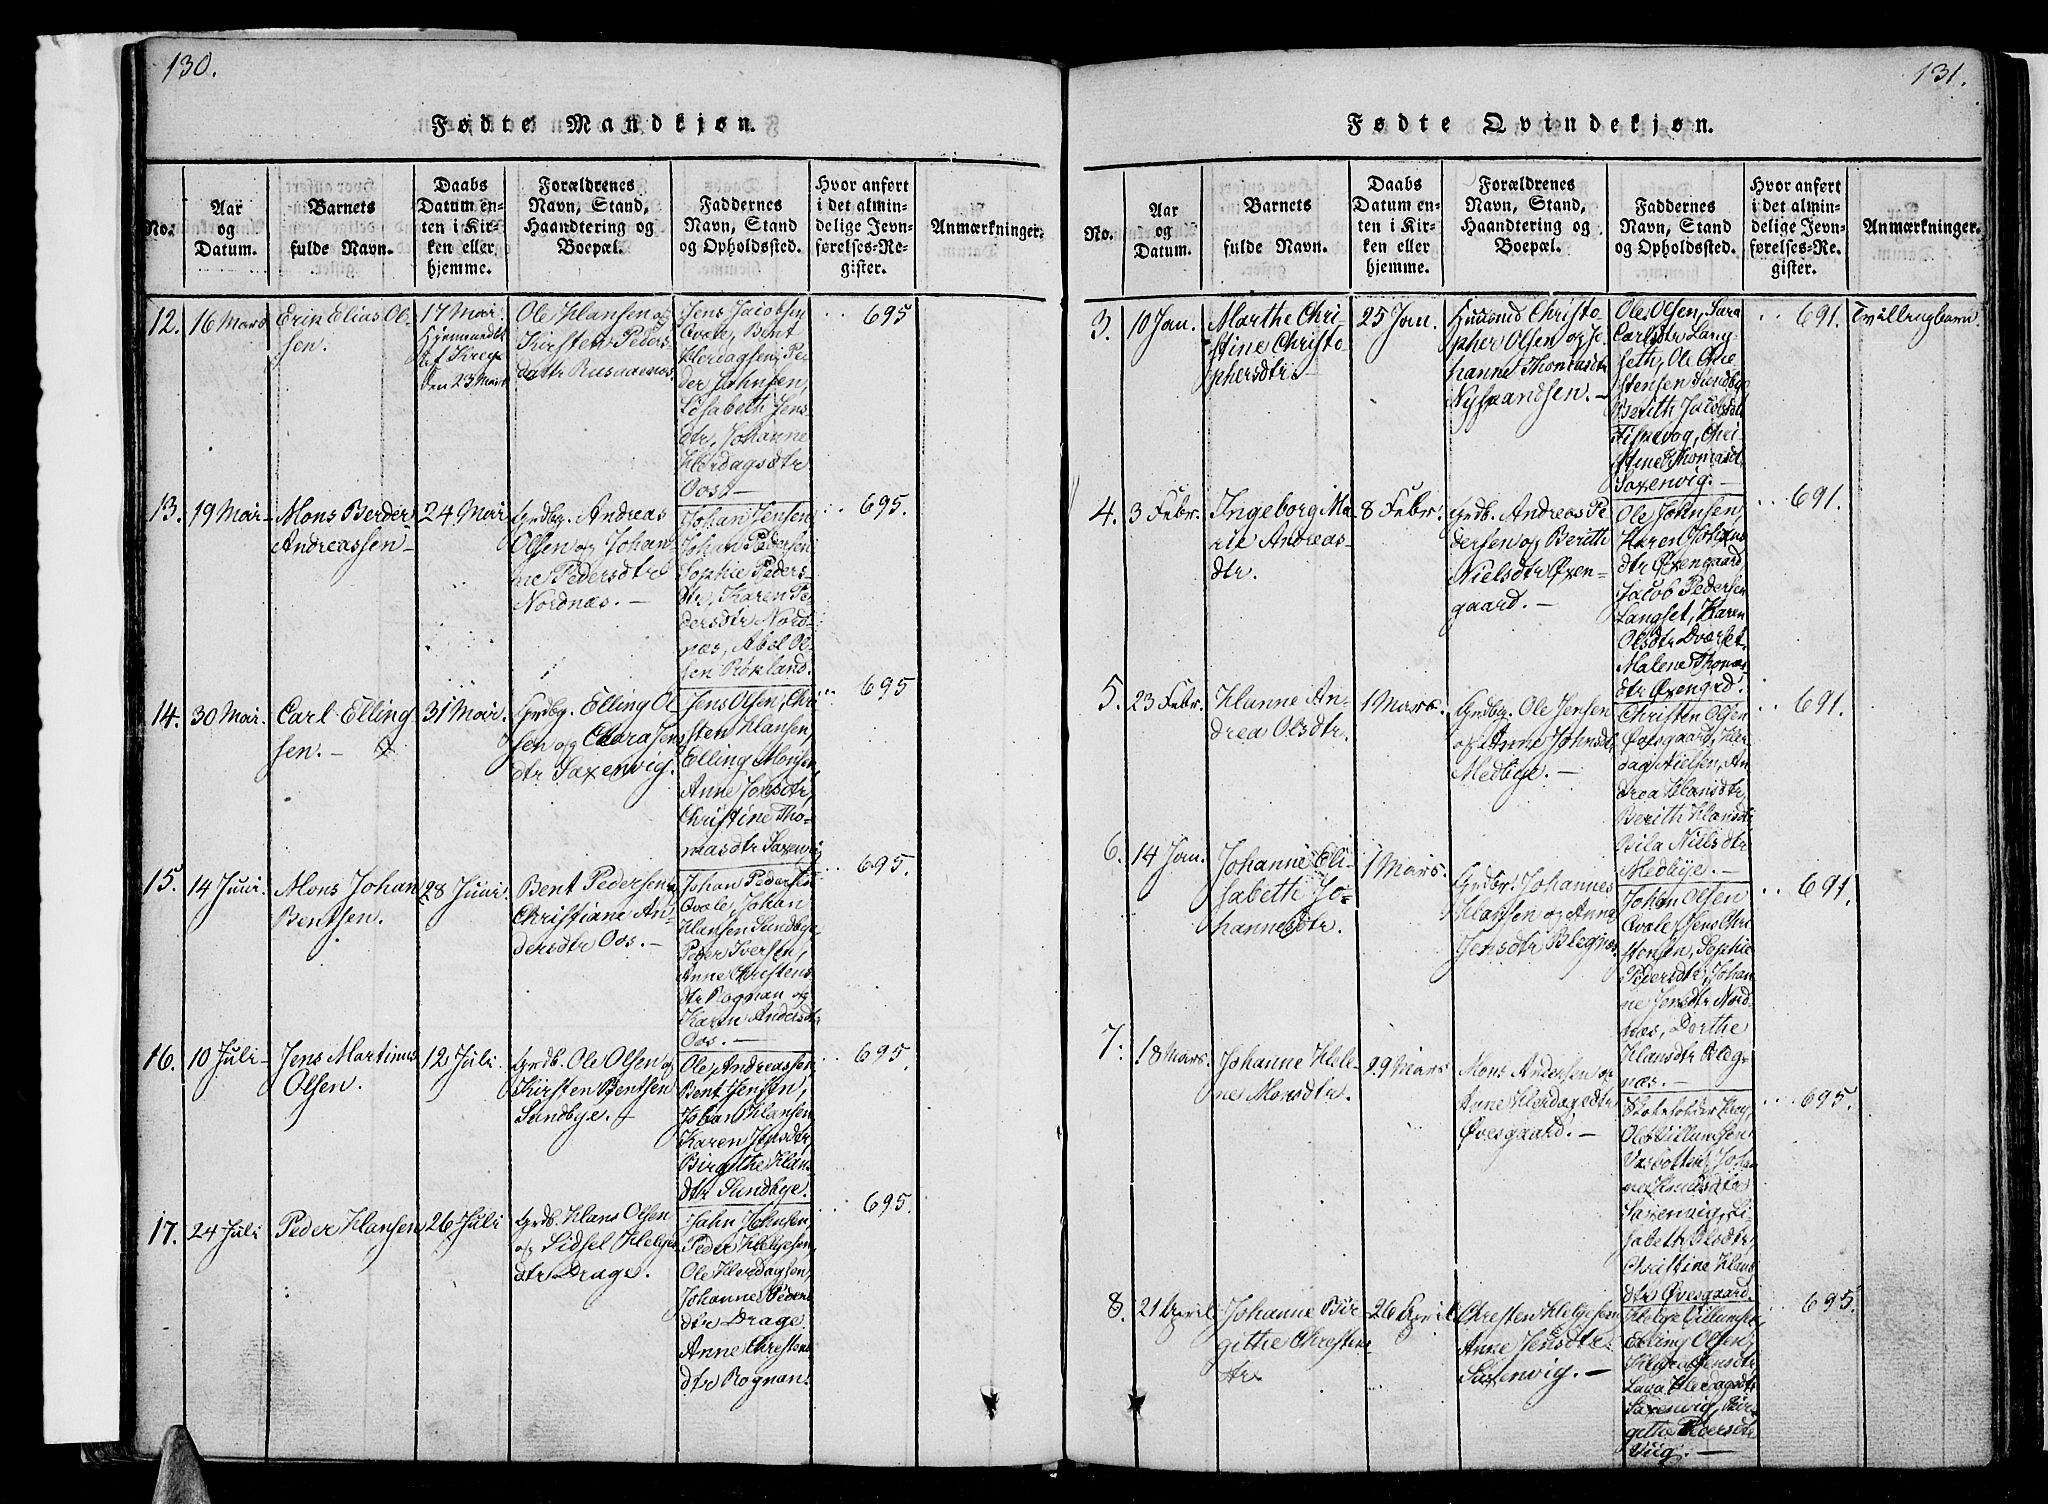 130.
Fødte Mandkjøn.
No.
Aar
og
Datum.
Barnets
fulde Navn.
Daabs
Datum en-
ten i Kir-
ken eller
hjemme.
Forældrenes
Navn, Stand,
Haandtering og
Boepæl.
Faddernes
Navn, Stand
og Opholdssted.
Hvor anført
i det almin-
delige Jevn-
førelses-Re-
gister.
Anmærkninger.
12.
16 Mars
Erik Elias Ol-
sen.
17 Mai
den 23 Mai
Ole Hansen og
Kirsten Peders-
datr
Jens Jacobsen
Qvale, Bent
Herdagsen, Pe-
der Johnsen,
Lisabeth Jens-
dtr, Johanne
Herdagsdtr
Oos. –
695
13.
19 Mai
Mons Berder
Andreassen
24 Mai
Grdbg. Andreas
Olsen og Johan-
ne Pedersdtr
Nordnæs. –
Johan Jensen,
Johan Pedersen
Sophie Peders-
dtr, Karen Pe-
dersdtr Nord-
næs, Abel Ol-
sen Røkland.
695.
14.
30 Mai.
Carl Elling
sen. –
31 Mai.
Grdbg. Elling Ol
sen og Clara Jens
dtr Saxenvig.
Jens Olsen, Chri
sten Hansen,
Elling Monsen
Anne Johsdtr,
Christine Tho-
masdtr Saxenvig
695
15.
14 Juni.
Mons Johan
Bentsen.
28 Juni.
Bent Pedersen og
Christiane An-
dersdtr Oos. –
Johan Pedersen
Qvale, Johan
Hansen Sundbye
Peder Iversen,
Anne Christens
dtr Rognan og
Karen Andersdtr
Oos. –
695.
16.
10 Juli
Jens Martinus
Olsen.
12 Juli
Grdb. Ole Olsen og
Kirsten Bentsen
Sundbye. –
Ole Andreassen
Bent Jensen,
Johan Hansen
Karen Jensdtr,
Birgithe Hans
dtr Sundbye.
695.
17.
24 Juli
Peder Hansen
26 Juli
Grdb. Hans Olsen
og Sidsel Helges
dtr Drage.
John Johnsen,
Peder Helgesen,
Ole Herdagsen,
Johanne Peders
dtr Drage.
Anne Christens
dtr Rognan.
695.
131.
Fødte Qvindekjøn.
No.
Aar
og
Datum.
Barnets
fulde Navn.
Daabs
Datum en-
ten i Kir-
ken eller
hjemme.
Forældrenes
Navn, Stand,
Haandtering og
Boepæl.
Faddernes
Navn, Stand
og Opholdssted.
Hvor anført
i det almin-
delige Jevn-
førelses-Re-
gister.
Anmærkninger.
3.
10 Jan.
Marthe Chri-
stine Christo-
phersdtr.
25 Jan.
Huusmd Christo
pher Olsen og Jo
hanne Thomasdtr
Ole Olsen, Sara
Carlsdtr Lang-
seth, Ole Chri
stensen Sundbye
Berith Jacobsdtr
Fiskevog, Chri-
stine Thomasdtr
Saxenvig. –
691.
Tvillingbarn
4.
3 Febr.
Ingeborg Ma-
rie Andreas-
dtr.
8 Febr.
Grdb. Andreas Pe
dersen og Berith
Nielsdtr Øxen-
gaard. –
Ole Johnsen,
Karen Johans
dtr Øxengaard
Jacob Pedersen
Langset, Karen
Olsdtr Dværset,
Malene Thomas
dtr Øxengrd.
691.
5.
23 Febr.
Hanne An-
drea Olsdtr.
1 Mars.
Grdbg. Ole Jensen
og Anne Johnsdtr
Medbye. –
Christen Olsen
Øvesgaard, Her
dag Nielsen, An
drea Hansdtr,
Berith Hansdtr
Sila Nielsdtr
Medbye. –
691.
6.
14 Jan.
Johanne Eli-
sabeth Jo-
hannesdtr.
1 Mars.
Grdbr. Johannes
Hansen og Anne
Jensdtr Blegnæs
Johan Olsen
Qvale, Jens Chri
stensen, Sophie
Pedersdtr, Johan
ne Jensdtr Nord-
næs, Dorthe
Hansdtr Bleg-
næs. –
691.
7.
18 Mars.
Johanne Hele-
ne Monsdtr.
29 Mars
Mons Andersen og
Anne Herdagsdtr
Øvesgaard. –
Skoleholder
Ole Villumsen
Johan
Saxenvig, Li
sabeth Olsdtr,
Christine Hans
dtr Øvesgaard.
695.
8.
21 April
Johanne Bir-
githe Christens-
dtr.
26 April
Christen Helgesen
Anne Jensdtr
Saxenvig. –
Helge Villumsen,
Elling Olsen,
Saxenvig, Bir-
githe Pedersdtr
Viig. –
695.